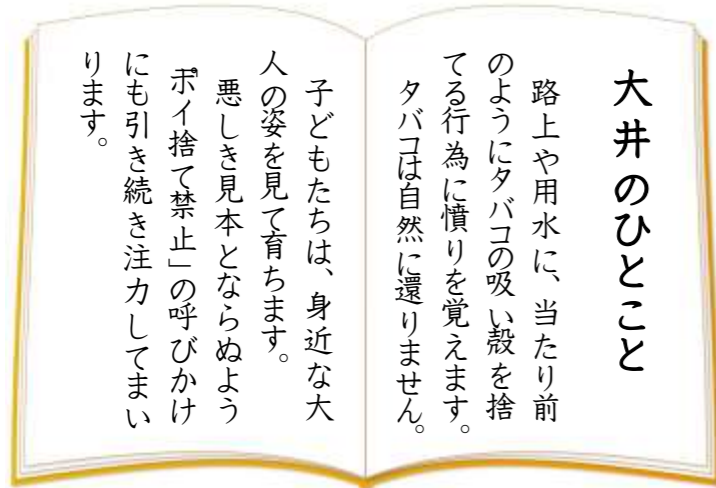 大井のひとこと
路上や用水に、当たり前
のようにタバコの吸い殻を捨
てる行為に憤りを覚えます。
タバコは自然に還りません。
子どもたちは、身近な大
人の姿を見て育ちます。
悪しき見本とならぬよう
「ポイ捨て禁止」の呼びかけ
にも引き続き注力してまい
ります。